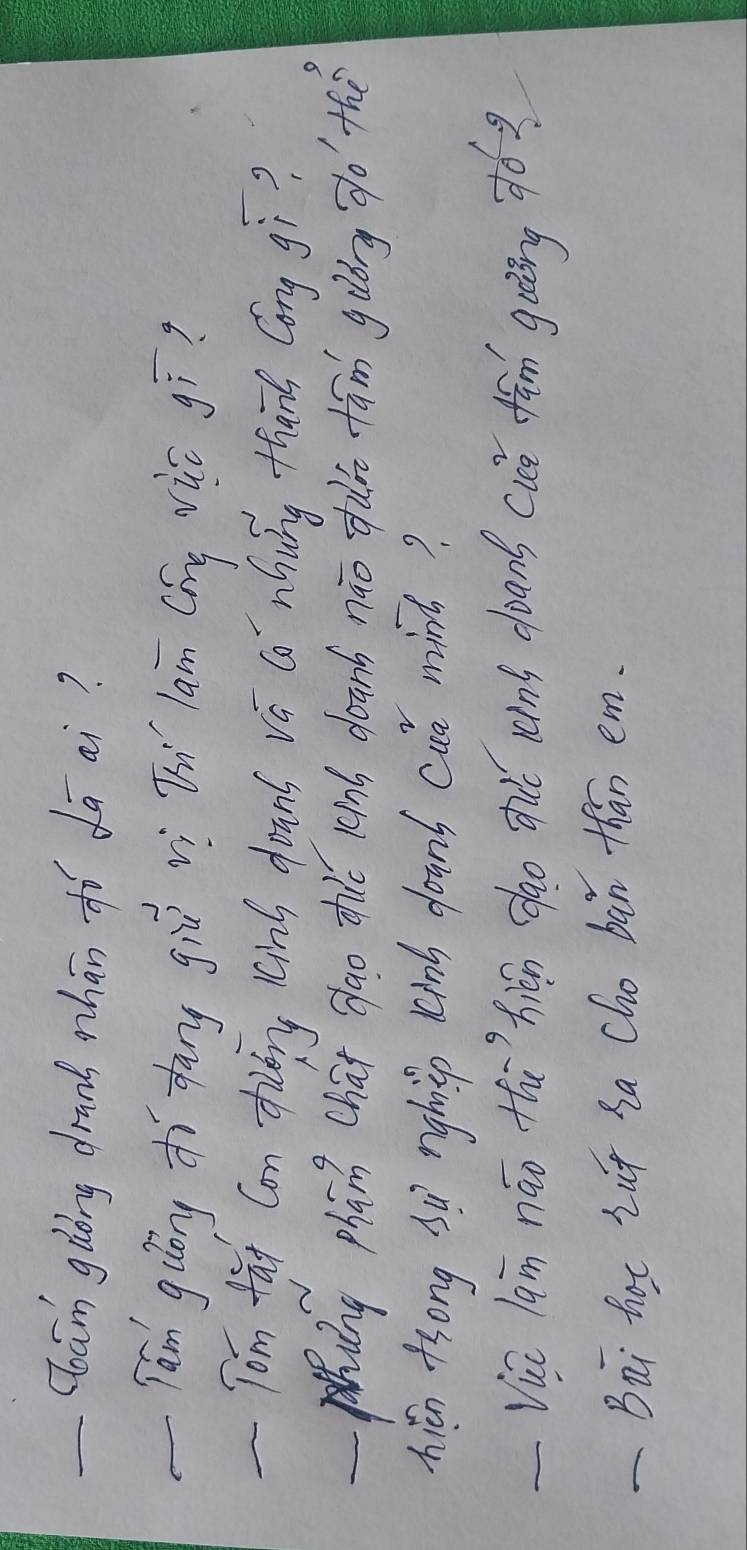 — Tấm gương doanh nhân đó là ai ?
— Tấm gương đó đang giữ vị trí làm công việc gì ?
— Tóm tắt con đường kinh doanh và có những thành công gì ?
— Những phẩm chất đạo đức kinh doanh nào được tấm gương đó thể
hiện trong sự nghiệp kinh doanh của mình ?
— Việc làm nào thể hiện đạo đức kinh doanh của tấm gương đó ?
— Bài học rút ra cho bản thân em.